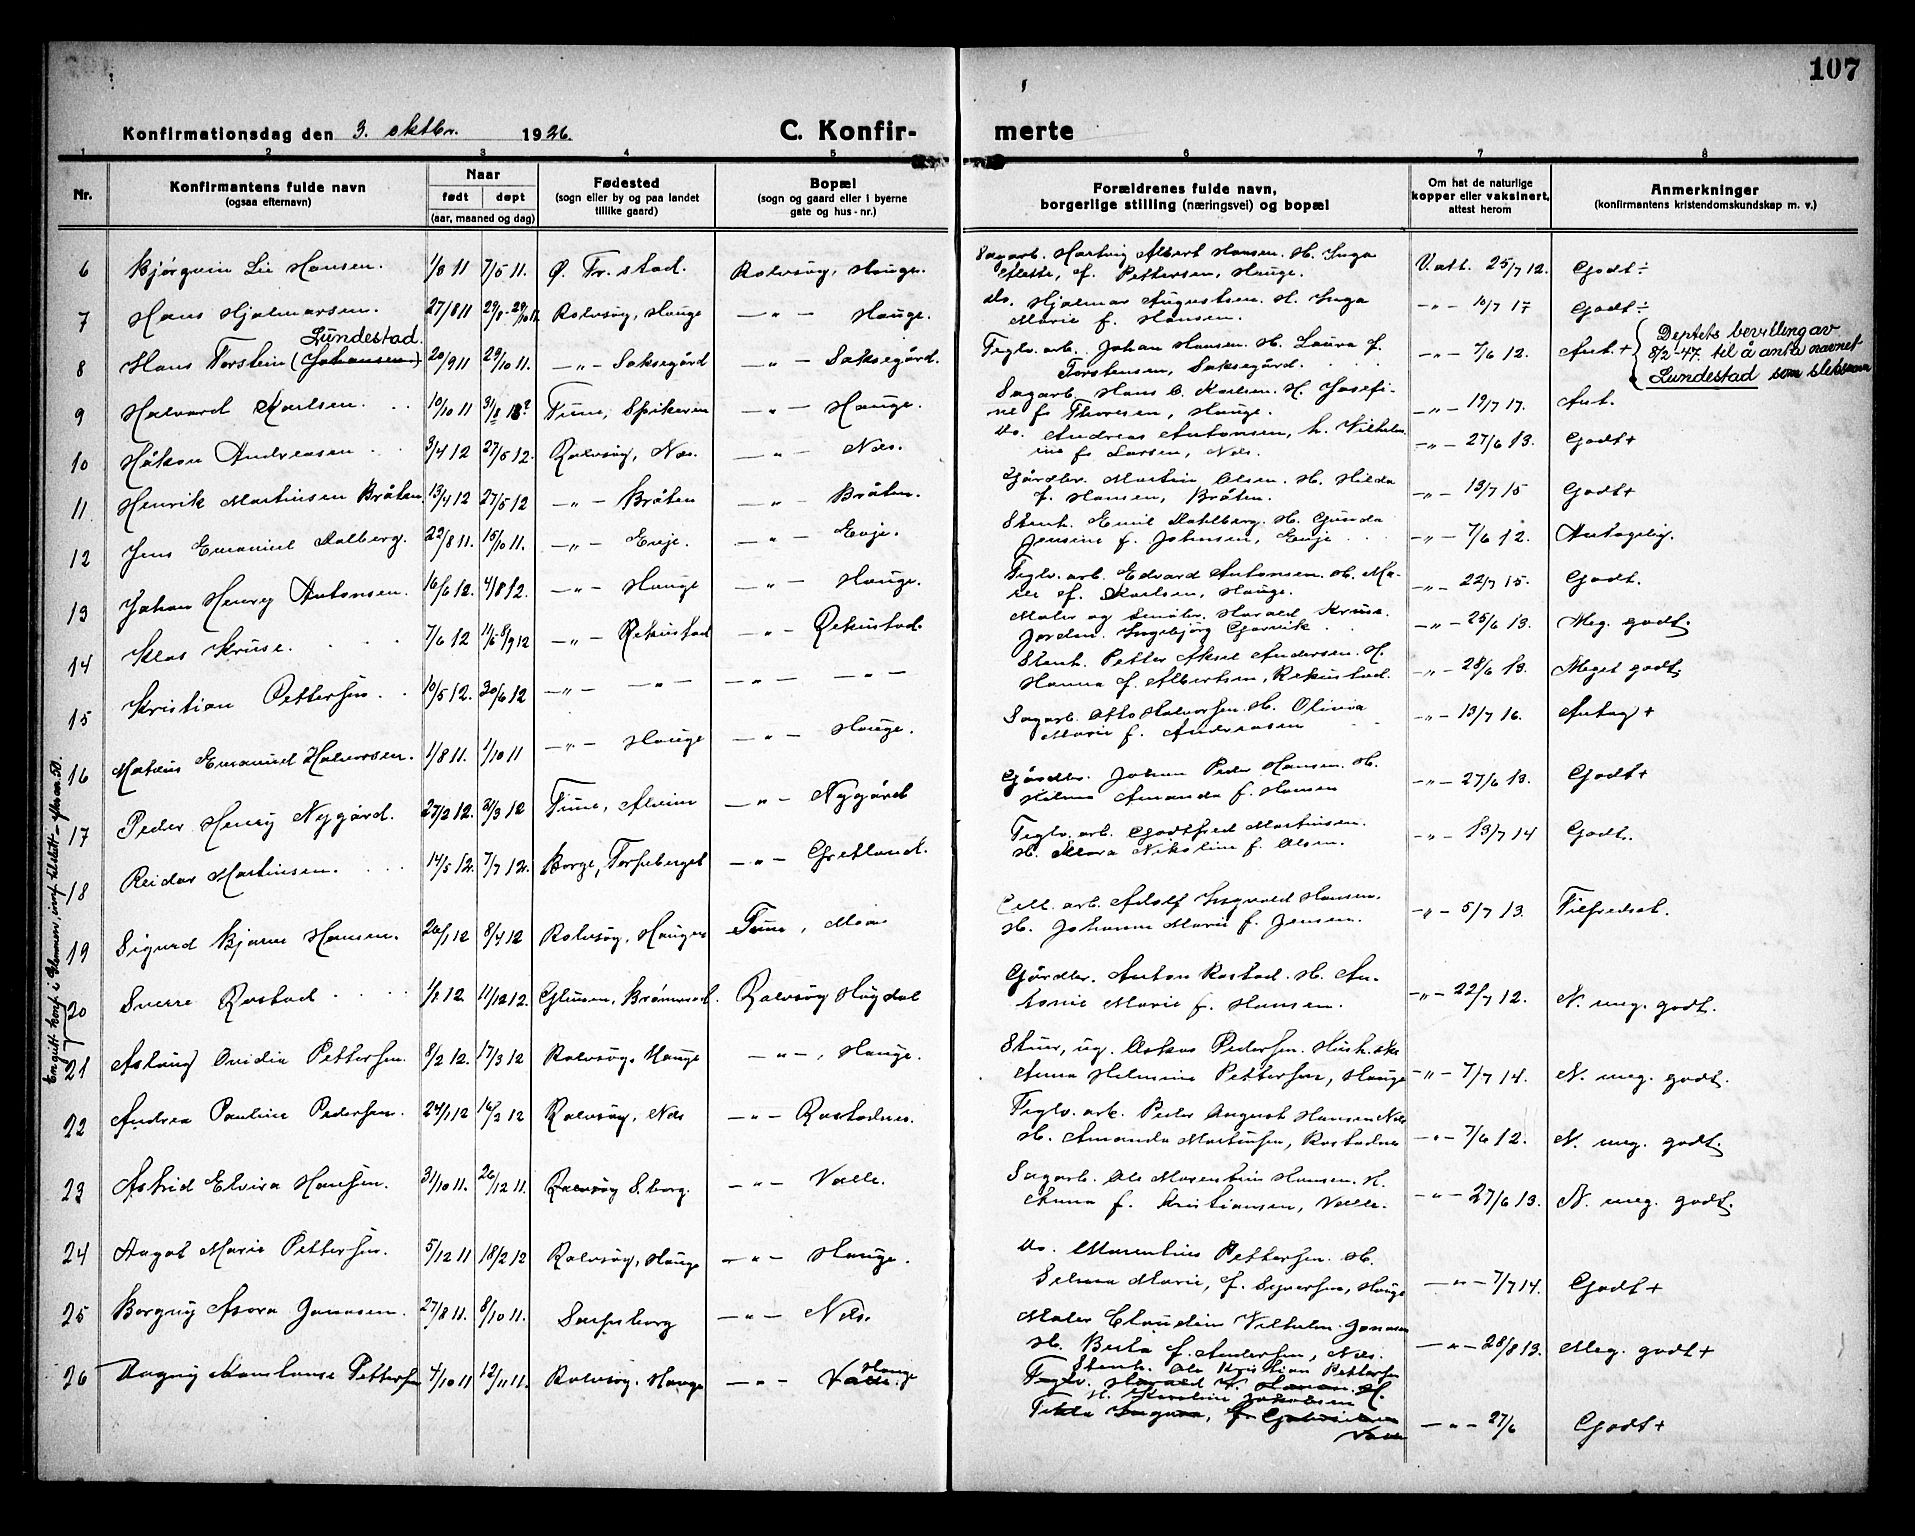 107
Konfirmationsdag den 3. oktbr. 1926.
C. Konfir- merte
1 2 3 4 5 6 7 8
Nr.
Konfirmantens fulde navn
(ogsaa efternavn)
Naar
født døpt
(aar, maaned og dag)
Fødested
(sogn eller by og paa landet
tillike gaard)
Bopæl
(sogn og gaard eller i byerne
gate og hus-nr.)
Forældrenes fulde navn,
borgerlige stilling (næringsvei) og bopæl
Om hat de naturlige
kopper eller vaksinert,
attest herom
Anmerkninger
(konfirmantens kristendomskundskap m. v.)
6 Bjørgvin Lie Hansen. 1/8 11 7/5 11. Ø. Fr.stad. Rolvsøy, Hauge. Sagarb. Hartvig Albert Hansen. H. Inga
f. Pettersen, Hauge. V. att. 25/7 12. Godt ÷
7 Hans Hjalmarsen. 27/8 11 Rolvsøy, Hauge — " — Hauge. Do. Hjalmar Augustsen. H. Inga
Marie f. Hansen. — " — 10/7 17 Godt ÷
Lundestad.
8 Hans Torstein (Johansen) 20/9 11 29/10 11. — " — Saksegård — " — Saksegård. Teglv. arb. Johan Hansen. H. Laura f.
Torstensen, Saksegård. — " — 7/6 12. Ant. +
Deptets bevilling av
8/2-47. til å anta navnet
Lundestad som slektsnavn
9 Halvard Karlsen. 10/10 11 Tune, Spikeren — " — Hauge. Sagarb. Hans C. Karlsen. H. Josefi-
ne f. Thoresen, Hauge. — " — 19/7 17. Ant.
10 Håkon Andreasen 3/4 12 27/5 12. Rolvsøy, Nes. — " — Nes. Do. Andreas Antonsen, h. Vilhelm
ine f. Larsen, Nes. — " — 27/6 13. Godt +
11 Henrik Martinsen Bråten 13/4 12 27/5 12 — " — Bråten — " — Bråten. Gårdbr. Martin Olsen. H. Hilda
f. Hansen, Bråten. — " — 13/7 15 Godt +
12 Jens Emanuel Dalberg. 22/8 11. 15/10 11. — " — Evje. — " — Evje. Stenh. Emil Dahlberg. H. Gunda
Jensine f. Johnsen, Evje — " — 7/6 12. Antagelig.
13 Johan Henry Antonsen. 16/6 12. 4/8 12. — " — Hauge — " — Hauge. Teglv. arb. Edvard Antonsen. H. Ma-
rie f. Karlsen, Hauge. — " — 22/7 15. Godt.
14 Klas Kruse. 7/6 12 — " — Rekustad — " — Rekustad. Maler og Småbr. Harald Kruse.
Jordm. Ingebjörg — " — 25/6 13. Meg. godt.
15 Kristian Pettersen. 10/5 12. 30/6 12 — " — — " — — " — — " — Stenh. Petter Aksel Andersen. H.
Hanna f. Albertsen, Rekustad. — " — 28/6 13. Meget godt.
16 Matæus Emanuel Halvorsen. 1/8 11. 1/10 11 — " — Hauge — " — Hauge. Sagarb. Otto Halvorsen. H. Olivia
Marie f. Andreasen — " — 13/7 16. Antag +
17 Peder Henry Nygård. 27/2 12. 31/3 12 Tune, Alvim — " — Nygård Gårdbr. Johan Peder Hansen. H.
Helma Amanda f. Hansen — " — 27/6 13. Godt +
18 Reidar Martinsen. 14/5 12. 7/7 12. Borge, Torpeberget — " — Gretland. Teglv. arb. Godtfred Martinsen.
H. Klara Nikoline f. Olsen. — " — 13/7 14 Godt.
19 Sigurd Bjarne Hansen. 26/1 12 8/4 12 Rolvsøy, Hauge Tune, Moa Cell. arb. Adolf Ingvald Hansen.
H. Johanne Marie f. Jensen. — " — 5/7 13. Tilfredsst.
20 Sverre Rostad 12. 11/12 12. Rolvsøy Haugdal Gårdbr. Anton Rostad. H. An-
tonie Marie f. Hansen. — " — 22/7 12. N. meg. godt.
En gutt konf. i Glemmen,
21 Aslaug Ovidia Pettersen 8/2 12. 17/3 12 Rolvsøy, Hauge — " — , Hauge. Stuer, ug. Oskar Pedersen. Hush. ske
Anna Helmine Pettersen, Hauge — " — 7/7 14. N. meg. godt.
22 Andrea Pauline Pedersen. 24/1 12 Rolvsøy, Nes — " — Rostadnes. Teglv. arb. Peder August Hansen Nes
H. Amanda Martinsen, Rostadnes — " — 7/6 12. N. meg. godt.
23 Astrid Elvira Hansen. 31/10 11. 26/12 11. Rolvsøy S.borg. — " — Valle. Sagarb. Ole Marentius Hansen. H.
Anna f. Kristiansen, Valle. — " — 27/6 13. N. meg. godt.
24 Aagot Marie Pettersen. 5/12 11 18/2 12 Rolvsøy, Hauge — " — Hauge. Do. Marentius Pettersen. H.
Selma Marie, f. Syversen, Hauge — " — 7/7 14. Godt +
25 Borgny Asora Jonasen. 27/8 11. 8/10 11. Sarpsborg — " — Nes. Maler Claudin Vilhelm Jonasen
H. Berta f. Andersen, Nes. — " — 28/8 13. Meg. godt +
26 Dagny Pettersen 4/10 11 12/11 11. Rolvsøy, Hauge — " — Valle. Hauge Stenh. Ole Kristian Pettersen
H. Karoline Jakobsen
Teglv. Harald — " — 27/6 Godt +